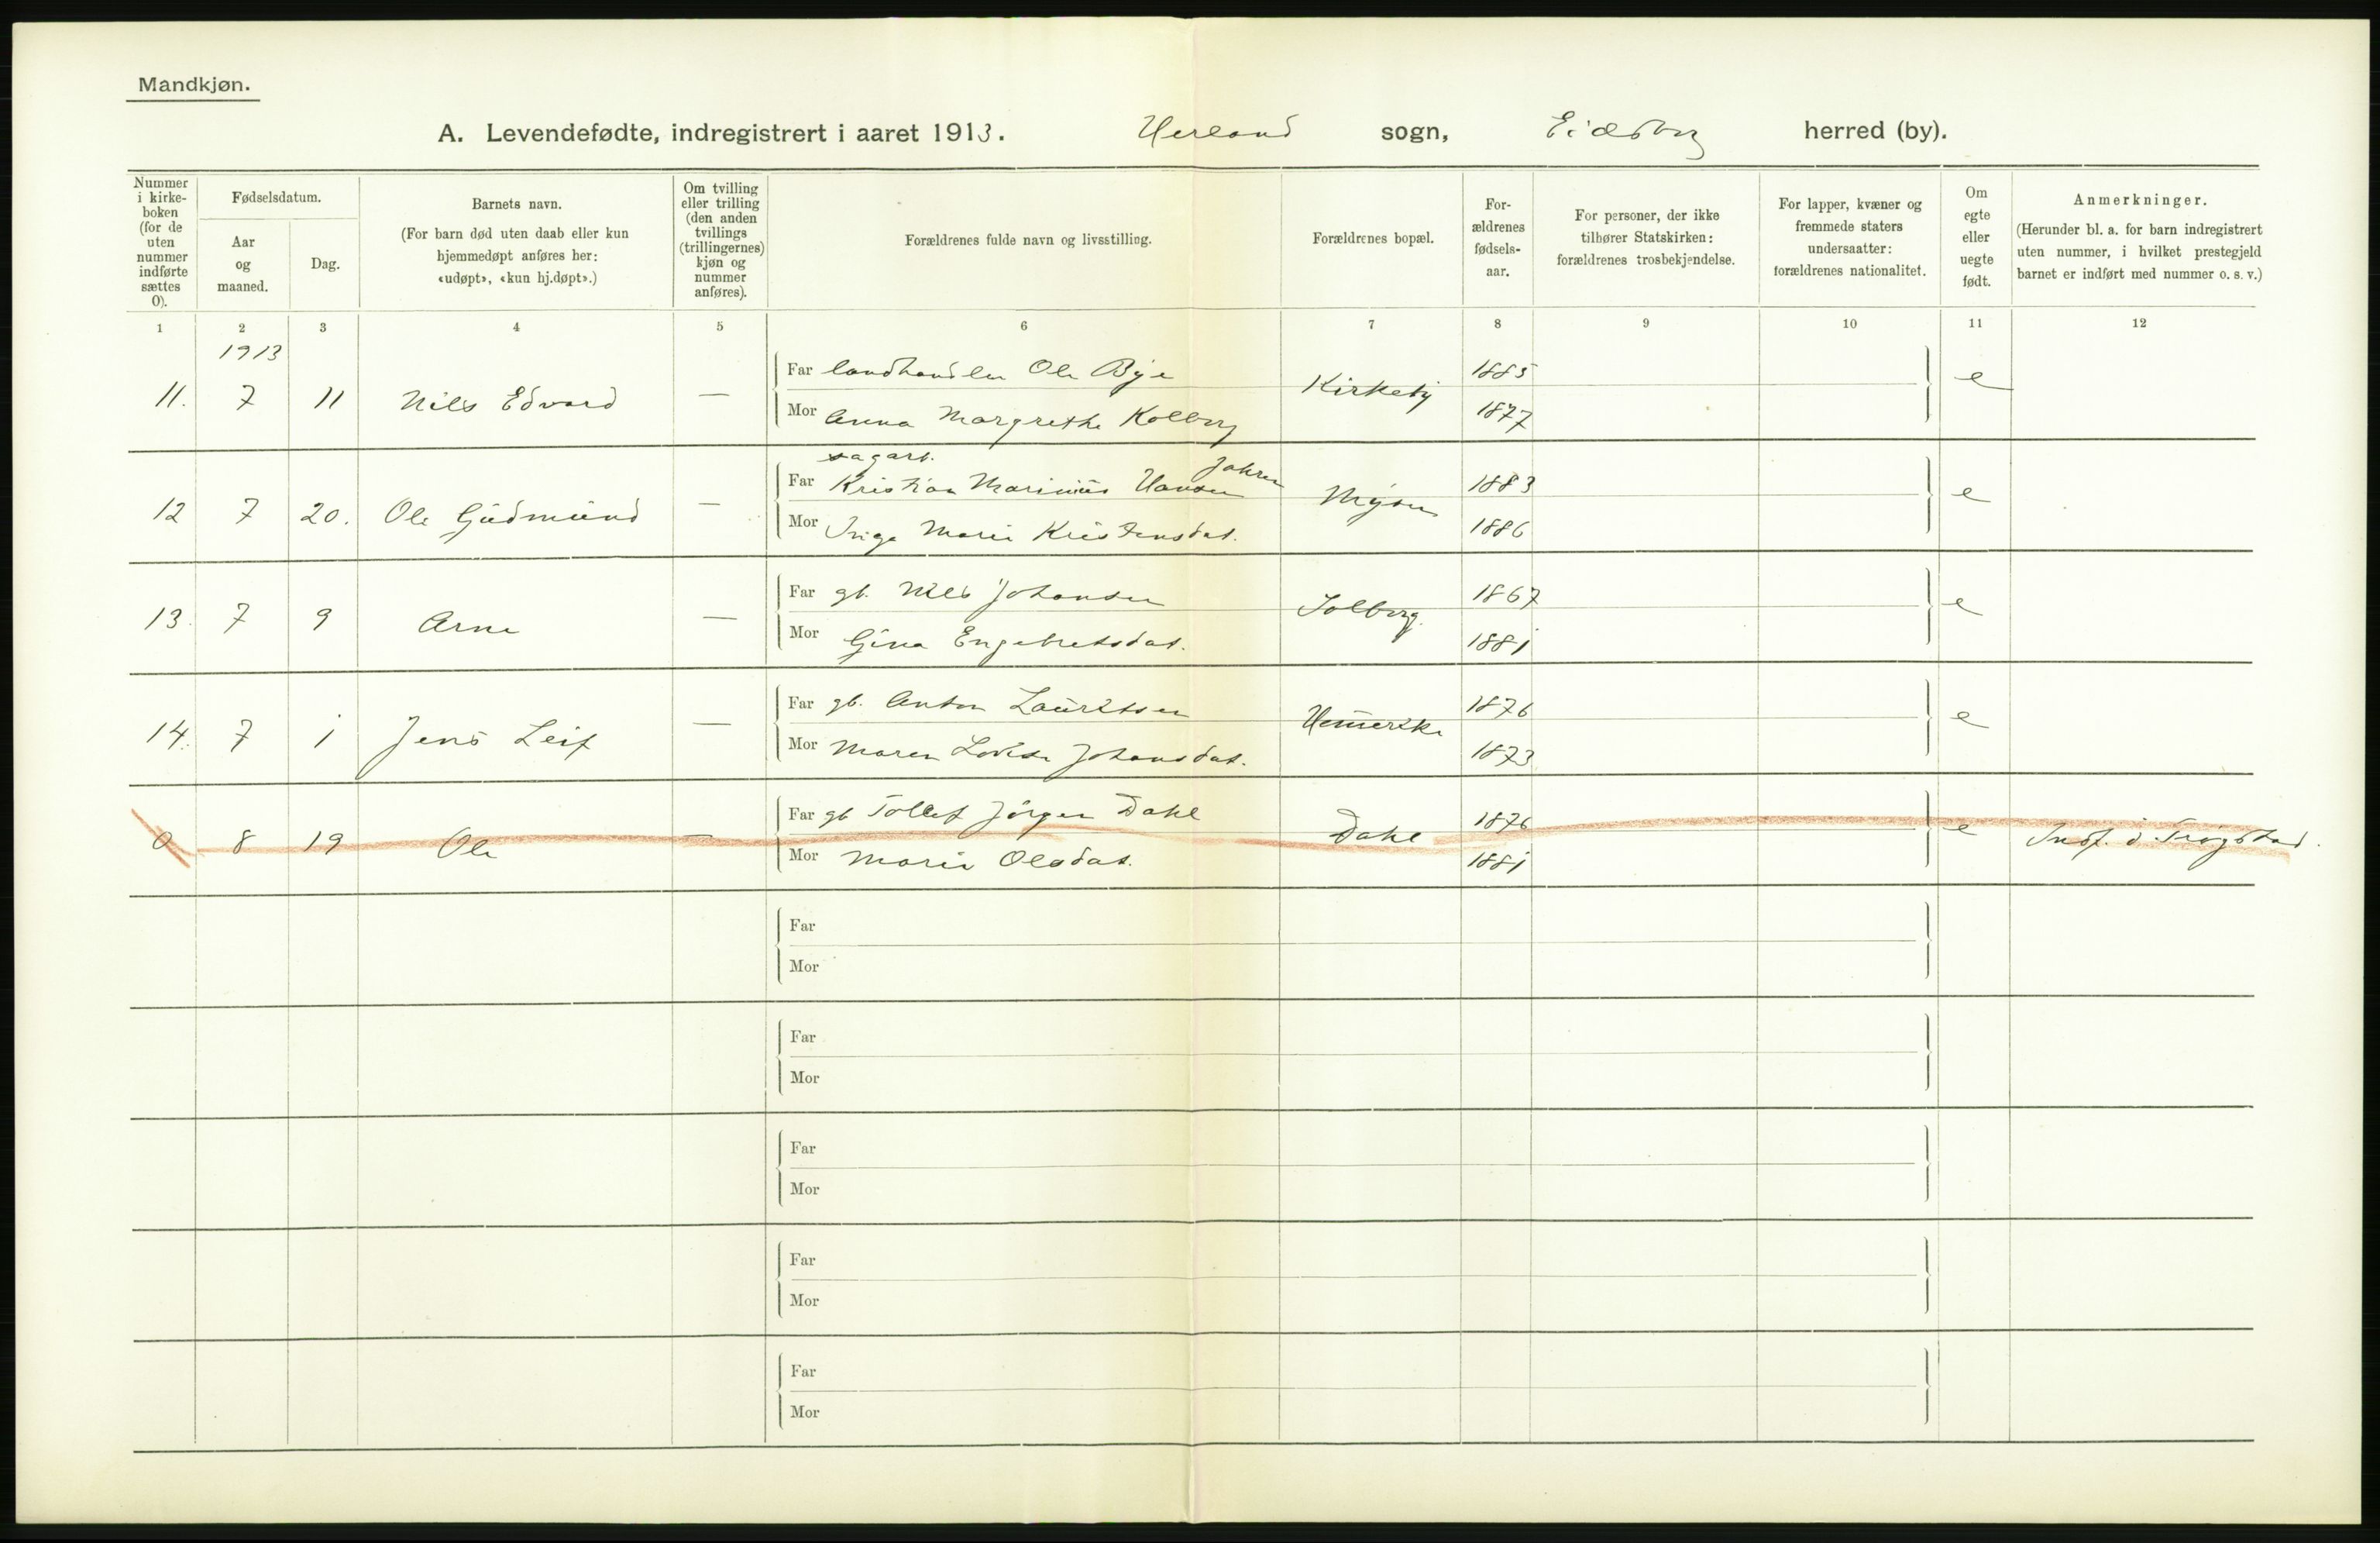 Mandkjøn.
A. Levendefødte, indregistrert i aaret 1913. Herland sogn, Eidsberg herred (by).
Nummer i kirke-boken (for de uten nummer indførte sættes 0).
Fødselsdatum.
Aar og maaned.
Dag.
Barnets navn.
(For barn død uten daab eller kun hjemmedøpt anføres her: «udøpt», «kun hj.døpt».)
Om tvilling eller trilling (den anden tvillings (trillingernes) kjøn og nummer anføres).
Forældrenes fulde navn og livsstilling.
Forældrenes bopæl.
For-ældrenes fødsels-aar.
For personer, der ikke tilhører Statskirken: forældrenes trosbekjendelse.
For lapper, kvæner og fremmede staters undersaatter: forældrenes nationalitet.
Om egte eller uegte født.
Anmerkninger.
(Herunder bl. a. for barn indregistrert uten nummer, i hvilket prestegjeld barnet er indført med nummer o. s. v.)
1 2 3 4 5 6 7 8 9 10 11 12
1913
11. 7 11 Nils Edvard —
Far landhandler Ole Bye Kirkeby 1885 e
Mor Anna Margrethe Kolberg 1877
sagarb.
12 7 20. Ole Gudmund —
Far Kristian Marinius Hansen Jahren Mysen 1883 e
Mor Inga Marie Kristensdat. 1886
13. 7 9 Arne —
Far gb. Nils Johansen Solberg. 1867 e
Mor Gina Engebretsdat. 1881
14. 7 1 Jens Leif —
Far gb. Anton Lauritsen 1876 e
Mor Maren Lovise Johansdat. 1873
0 8 19 Ole —
Far gb Tollef Jörgen Dahl Dahl 1876 e Indf. i Trögstad.
Mor Marie Olsdat. 1881
Far
Mor
Far
Mor
Far
Mor
Far
Mor
Far
Mor